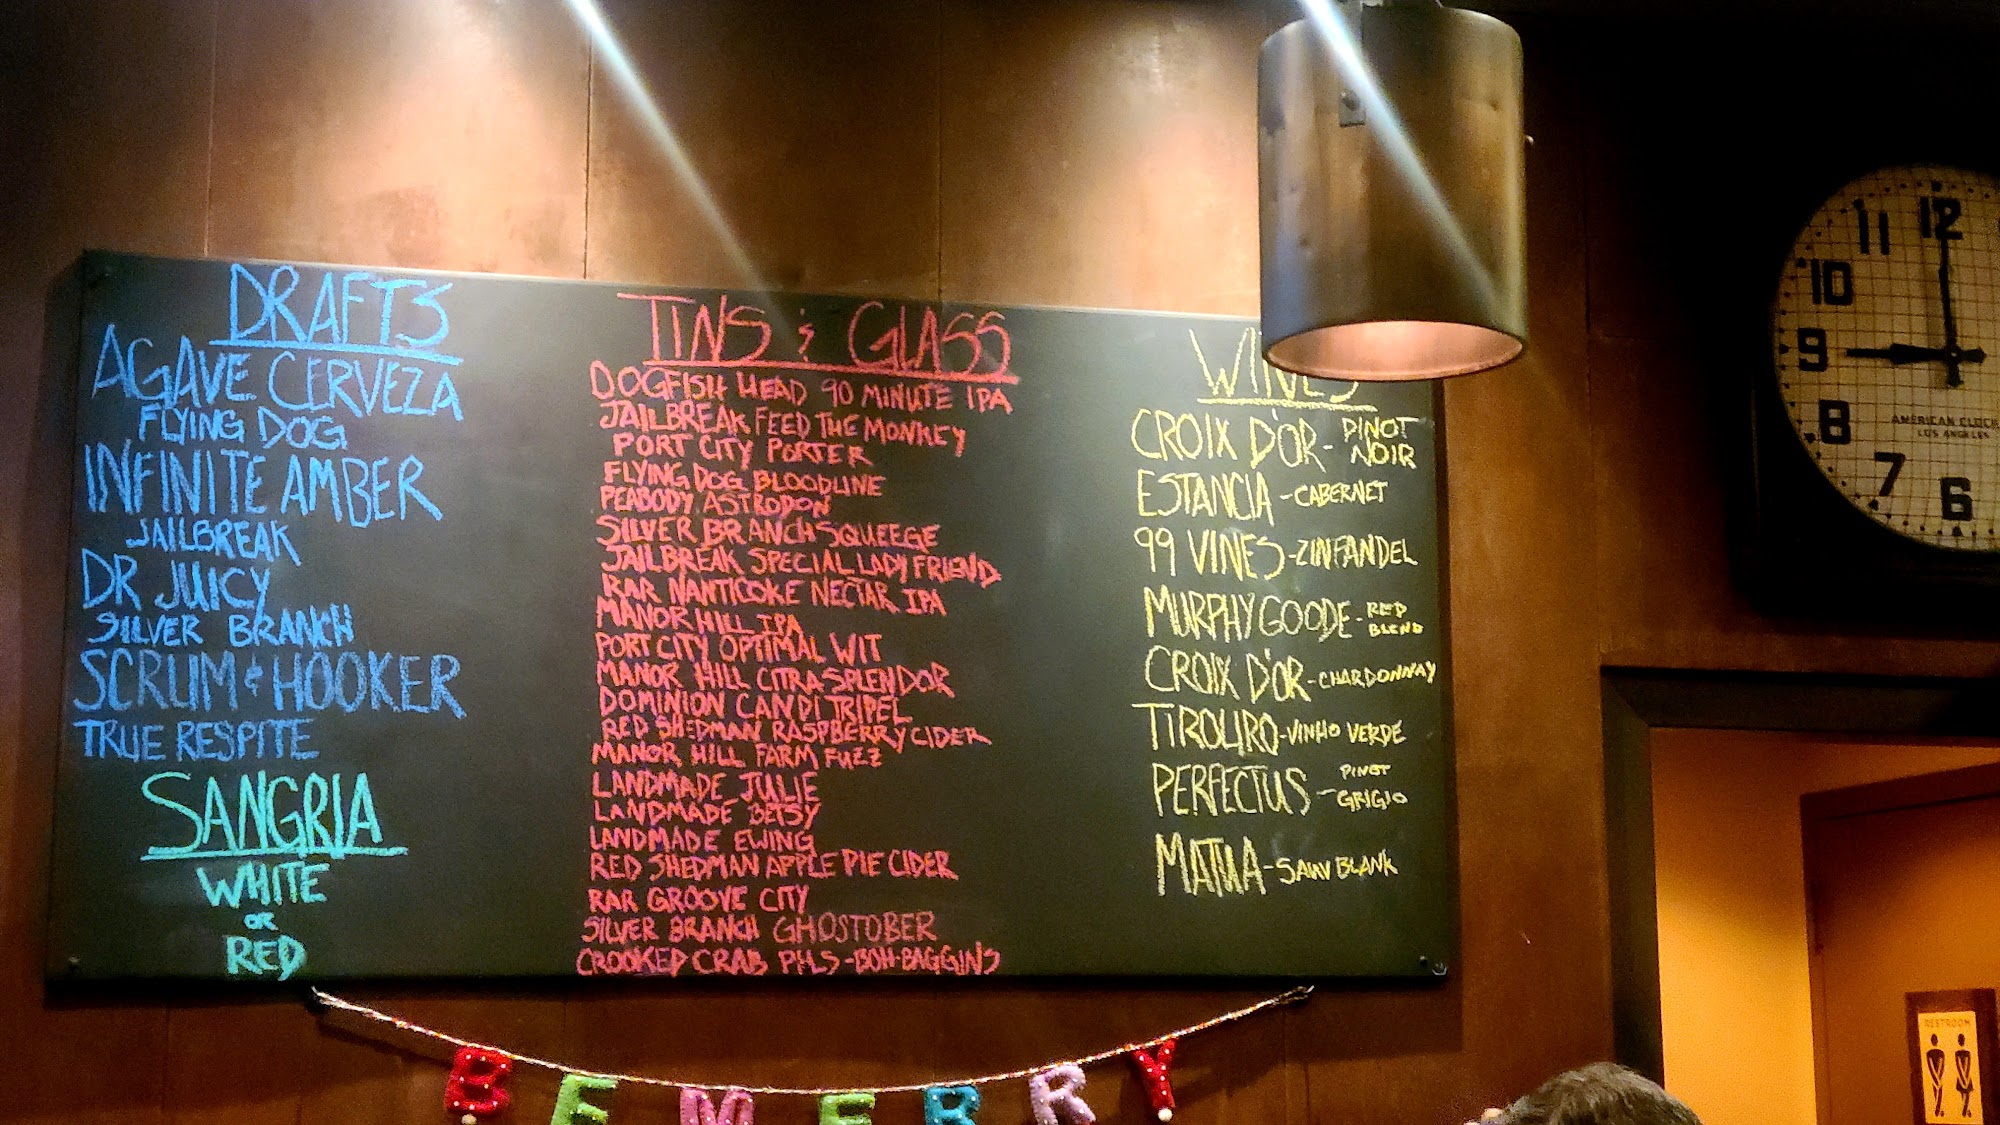 DRAFTS
AGAVE CERVEZA
FLYING DOG
INFINITE AMBER
JAILBREAK
DR JUICY
SILVER BRANCH
SCRUM & HOOKER
TRUE RESPITE
SANGRIA
WHITE
OR
RED
TINS & GLASS
DOGFISH HEAD 90 MINUTE IPA
JAILBREAK FEED THE MONKEY
PORT CITY PORTER
FLYING DOG BLOODLINE
PEABODY ASTRODON
SILVER BRANCH SQUEEGE
JAILBREAK SPECIAL LADY FRIEND
RAR NANTICOKE NECTAR IPA
MANOR HILL IPA
PORT CITY OPTIMAL WIT
MANOR HILL CITRA SPLENDOR
DOMINION CANDI TRIPEL
RED SHEDMAN RASPBERRY CIDER
MANOR HILL FARM FUZZ
LANDMADE JULIE
LANDMADE BETSY
LANDMADE EWING
RED SHEDMAN APPLE PIE CIDER
RAR GROOVE CITY
SILVER BRANCH GHOSTOBER
CROOKED CRAB PILS-BOH-BAGGINS
WINES
CROIX D'OR - PINOT NOIR
ESTANCIA - CABERNET
99 VINES - ZINFANDEL
MURPHY GOODE - RED BLEND
CROIX D'OR - CHARDONNAY
TIROLIRO - VINHO VERDE
PERFECTUS - PINOT GRIGIO
MATUA - SAUV BLANK
12
11
10
9
8
7
6
AMERICAN CLOCK
LOS ANGELES
RESTROOM
BE MERRY